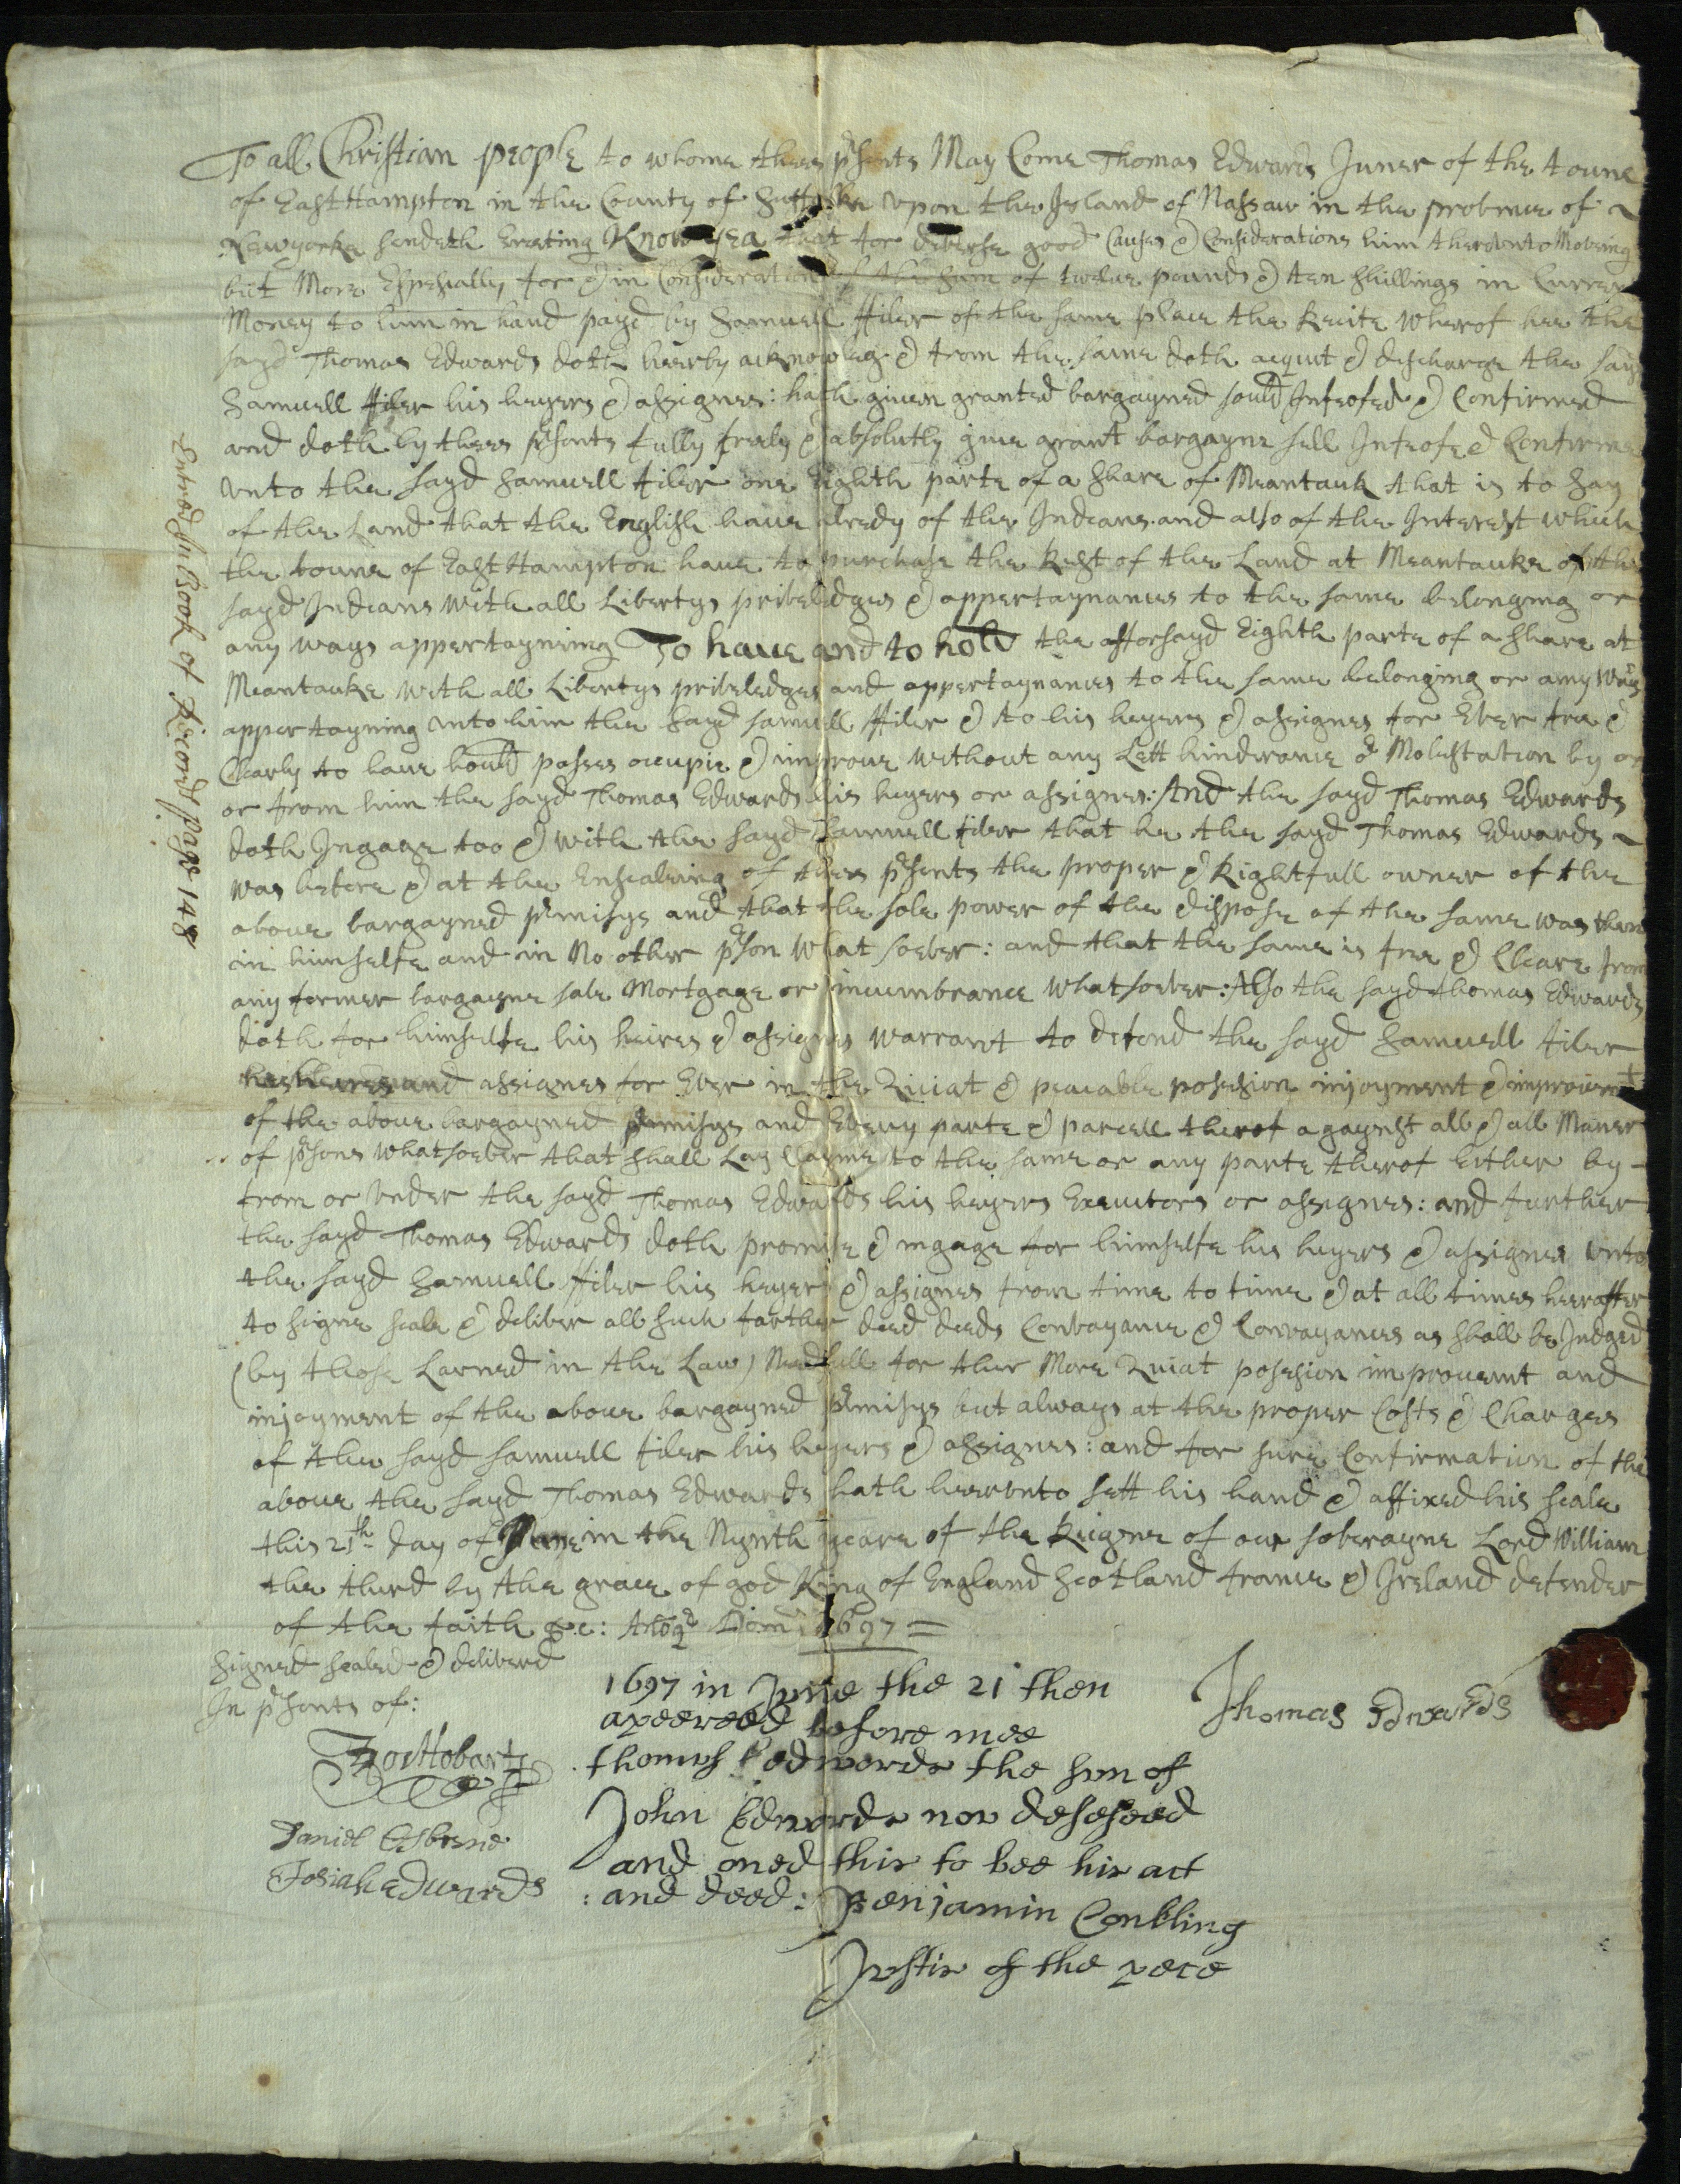 To all Christian people to whome thees psents May Come Thomas Edwards Juner of the toune
of EastHampton in the County of Suffolke vpon the Island of Nassaw in the provinve of ~
Newyorke sendeth Greeting Know yea that for diverse good Causes & Considerations him thervnto Moveing
but More Espesially for & in Consideration of the sum of twelve pounds & ten shillings in Curren
Money to him in hand payd by Samuell ffiler of the same place the Receite wherof hee the
sayd Thomas Edwards doth heerby acknowledg & from the same doth acquit & discharge the sayd
Samuell ffiler his heyers & assignes: hath given granted bargayned sould Infeofed & Confirmed
and doth by thees psents fully freely & absolutly give grant bargayne sell Infeofe & Confirme
vnto the sayd Samuell filer one Eighth parte of a share of Meantauk that is to say
of the Land that the English have alredy of the Indians and also of the Interest which
the toune of EastHampton have to purchase the Rest of the Land at Meantauke of the
sayd Indians with all Libertys priveledges & appertaynances to the same belonging or
any ways appertayning To have and to hold the afforsayd Eighth parte of a share at
Meantauke with all Libertys priveledges and appertaynances to the same belonging or any ways
appertayning vnto him the sayd samuell ffiler & to his heyers & assignes for Ever free &
Clearly to have hould posses occupie & improve without any Lett hinderance or Molestation by or
or from him the sayd Thomas Edwards his heyers or assignes: And the sayd Thomas Edwards
doth Ingage too & with the sayd Samuell filer that he the sayd Thomas Edwards ~
was before & at the Ensealeing of thees psents the proper & Rightfull owner of the
above bargayned pmisys and that the sole power of the dispose of the same was then
in himselfe and in No other pson what soever: and that the same is free & Cleare from
any former bargayne sale Mortgage or incumbrance whatsoever: Also the sayd Thomas Edwards
doth for himselfe his heires & assignes warrant to defend the sayd Samuell filer
his heires and assignes for Ever in the Quiat & peacable posession injoyment & improvemt
of the above bargayned pmisys and Every parte & parcell therof agaynst all & all Maner
of psons whatsoever that shall Lay Clayme to the same or any parte therof Either by -
from or vnder the sayd Thomas Edwards his heyers Executors or assignes: and further
the sayd Thomas Edwards doth promise & ingage for himselfe his heyers & assignes vnto
the sayd Samuell ffiler his heyers & assignes from time to time & at all times heerafter
to signe seale & deliver all such farther deed deeds Convayance & Convayances as shall be Judged
(by those Larned in the Law) Needfull for ther More Quiat posesion improvemt and
injoyment of the above bargayned pmisys but always at the proper Costs & Charges
of the sayd samuell filer his heyers & assignes: and for sure Confirmation of the
above the sayd Thomas Edwards hath heervnto sett his hand & affixed his seale
this 21th day of June in the Nynth yeare of the Reigne of our soverayne Lord William
the third by the grace of god King of England Scotland france & Ireland defender
of the faith &c: Anoq Dom 1697 =
Signed sealed & deliverd
In psents of:
Thomas Edwards
Jos: Hobart
Daniel Osborne
Josiah Edwards
1697 in June the 21 then
apeereed before mee
thomas edwards the sun of
John Edwards now deseseed
and oned this to bee his act
: and deed: Benjamin Conkling
Justis of the pece
Entred In Book of Record page 148